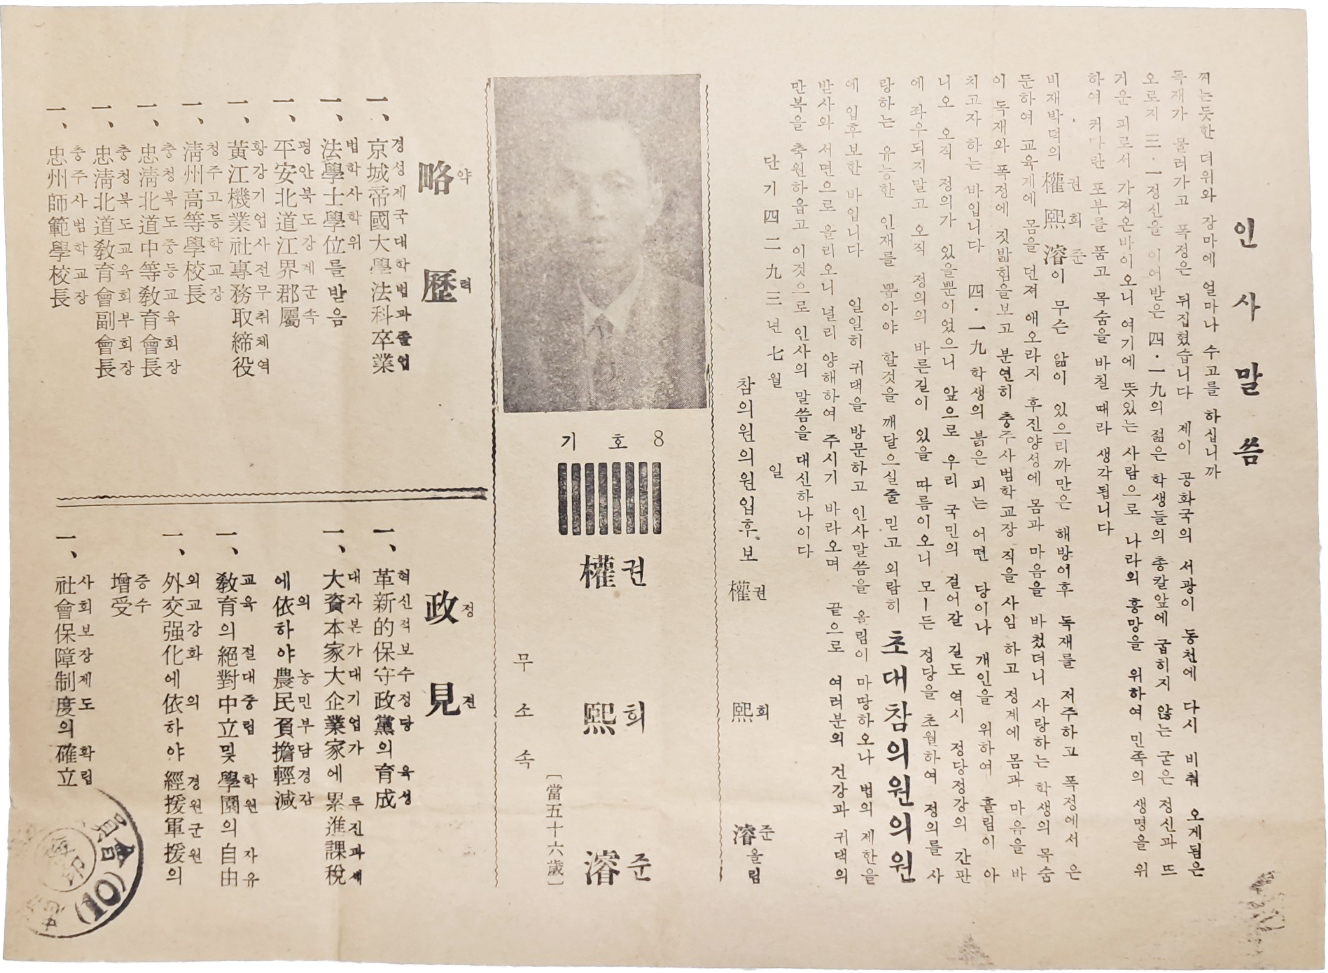 인사말씀
찌는듯한 더위와 장마에 얼마나 수고를 하십니까
독재가 물러가고 폭정은 뒤집혔습니다 제이 공화국의 서광이 동천에 다시 비춰 오게됨은
오로지 三·一정신을 이어받은 四·一九의 젊은 학생들의 총칼앞에 굽히지 않는 굳은 정신과 뜨
거운 피로서 가져온바이오니 여기에 뜻있는 사람으로 나라의 흥망을 위하여 민족의 생명을 위
하여 커다란 포부를 품고 목숨을 바칠 때라 생각됩니다
비재박덕의 權熙濬이 무슨 앎이 있으리까만은 해방이후 독재를 저주하고 폭정에서 은
권희준
둔하여 교육계에 몸을 던져 애오라지 후진양성에 몸과 마음을 바쳤더니 사랑하는 학생의 목숨
이 독재와 폭정에 짓밟힘을보고 분연히 충주사범학교장 직을 사임 하고 정계에 몸과 마음을 바
치고자 하는 바입니다 四·一九 학생의 붉은 피는 어떤 당이나 개인을 위하여 흘림이 아
니오 오직 정의가 있을뿐이었으니 앞으로 우리 국민의 걸어갈 길도 역시 정당정강의 간판
에 좌우되지말고 오직 정의의 바른길이 있을 따름이오니 모ー든 정당을 초월하여 정의를 사
랑하는 유능한 인재를 뽑아야 할것을 깨달으실줄 믿고 외람히 초대참의원의원
에 입후보한 바입니다 일일히 귀댁을 방문하고 인사말씀을 올림이 마땅하오나 법의 제한을
받사와 서면으로 올리오니 널리 양해하여 주시기 바라오며 끝으로 여러분의 건강과 귀댁의
만복을 축원하옵고 이것으로 인사의 말씀을 대신하나이다
단기四二九三년七월 일
참의원의원입후보 權熙濬올림
권희준
기호8
權熙濬
권희준
무소속
[當五十六歲]
略歷
약력
一、京城帝國大學法科卒業
경성제국대학법과졸업
一、法學士學位를받음
법학사학위
一、平安北道江界郡屬
평안북도강계군속
一、黃江機業社專務取締役
황강기업사전무취체역
一、淸州高等學校長
청주고등학교장
一、忠淸北道中等敎育會長
충청북도중등교육회장
一、忠淸北道敎育會副會長
충청북도교육회부회장
一、忠州師範學校長
충주사범학교장
政見
정견
一、革新的保守政黨의育成
혁신적보수정당육성
一、大資本家大企業家에累進課稅
대자본가대기업가 루진과세
에依하야農民負擔輕減
의 농민부담경감
一、敎育의絕對中立및學園의自由
교육 절대중립 학원 자유
一、外交强化에依하야經援軍援의
외교강화 의 경원군원
增受
증수
一、社會保障制度의確立
사회보장제도 확립